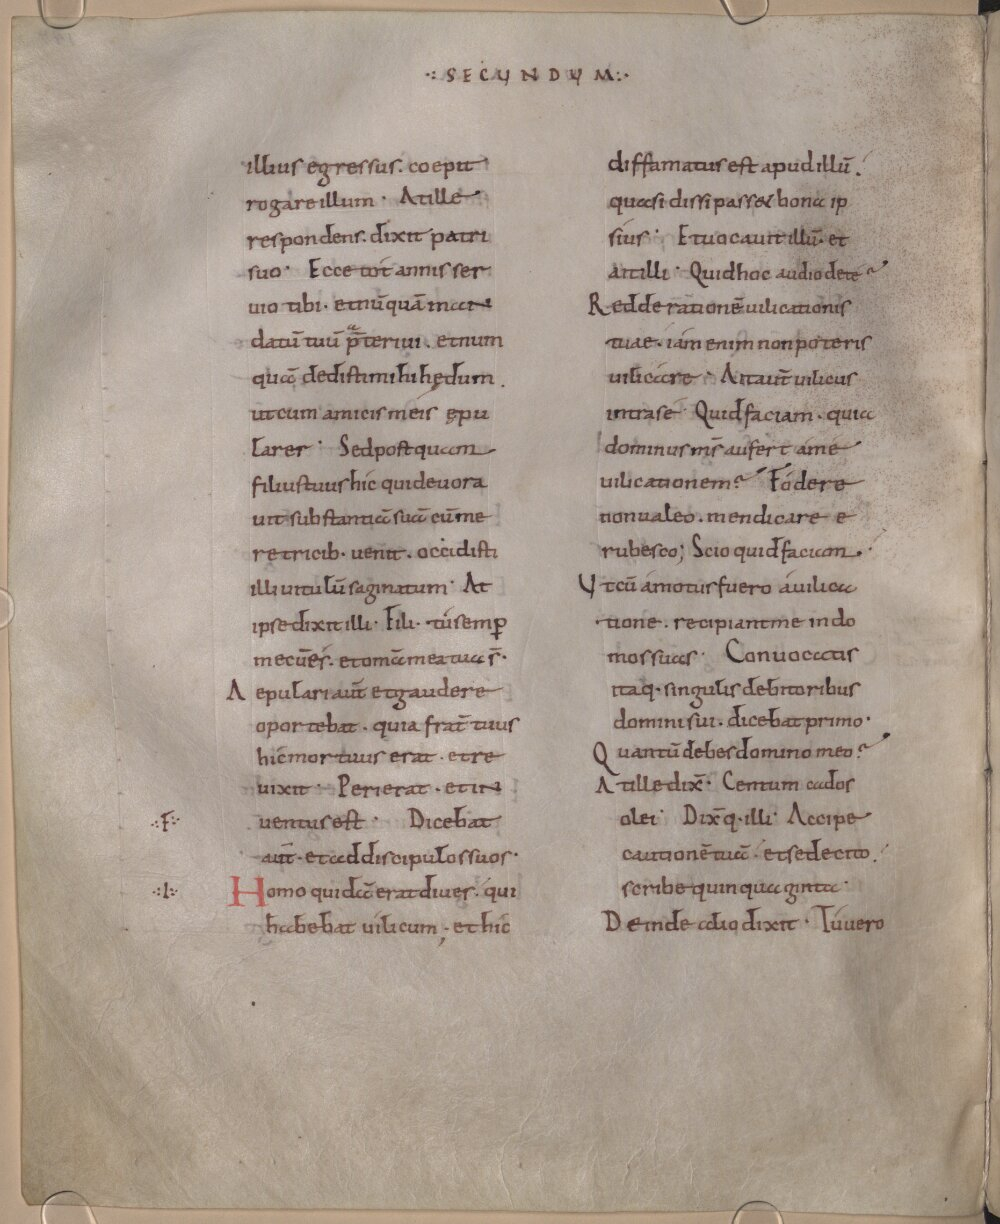 ·: SECUNDUM :·
illius egressus. coepit
rogare illum · At ille
respondens. dixit patri
suo · Ecce tot annis ser
uio tibi · et nūquā man
datū tuū p̄terιui . et num
quā dedisti mihi hędum .
ut cum amicis meis epu
larer · Sed postquam
filius tuus hic qui deuora
uit substantiā suā cū me
retricib· uenit . occidisti
illi uitulū saginatum · At
ipse dixit illi · Fili · tu semꝑ
mecū es . et omā mea tua s̄ ·
Aepulari aut̄ et gaudere
oportebat . quia frat̄ tuus
hic mortuus erat . et re
uixit · Perierat . et in
·:F:· uentus est · Dicebat
aut̄ . et ad discipulos suos ·
·:I:· Homo quidā erat diues . qui
habebat uilicum ; et hic
diffamatus est apud illū .
quasi dissipasset bona ip
sius · Et uocauit illū . et
ait illi · Quid hoc audio de te ?
Redde rationē uilicationis
tuae . iam enim non poteris
uilicare · Ait aut̄ uilicus
intra se · Quid faciam . quia
dominus m̄s aufert a me
uilicationem ? Fodere
non ualeo . mendicare e
rubesco ; Scio quid faciam .
Ut cū amotus fuero a uilica
tione . recipiant me in do
mos suas · Conuocatis
itaq· singulis debitoribus
domini sui . dicebat primo ·
Quantū debes domino meo ?
At ille dix̄ · Centum cados
olei · Dix̄q· illi · Accipe
cautionē tuā . et sede cito .
scribe quinquaginta ·
Deinde alio dixit · Tu uero